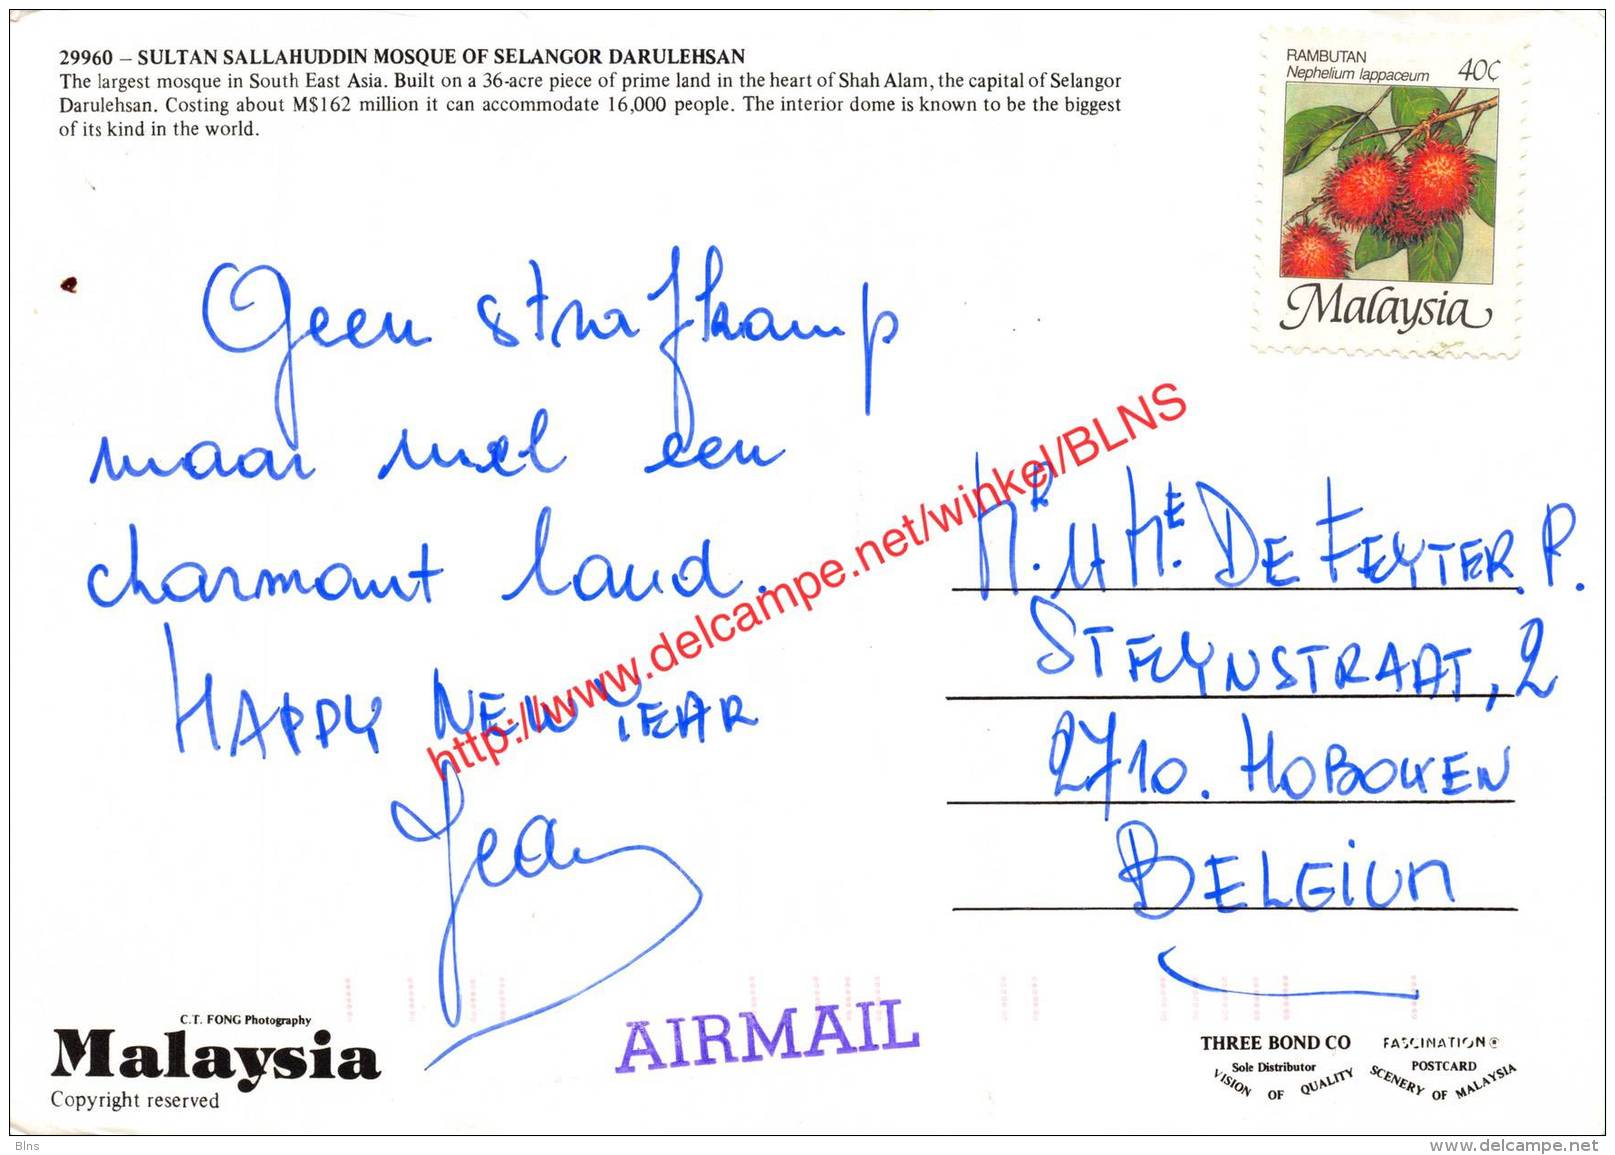 29960 – SULTAN SALLAHUDDIN MOSQUE OF SELANGOR DARULEHSAN
The largest mosque in South East Asia. Built on a 36-acre piece of prime land in the heart of Shah Alam, the capital of Selangor
Darulehsan. Costing about M$162 million it can accommodate 16,000 people. The interior dome is known to be the biggest
of its kind in the world.
RAMBUTAN
Nephelium lappaceum 40¢
Malaysia
Geen strafkamp
maar wel een
charmant land.
HAPPY NEW YEAR
Jean
MR. & ME. DE FEYTER P.
STEYNSTRAAT, 2
2710. HOBOKEN
BELGIUM
http://www.delcampe.net/winkel/BLNS
AIRMAIL
C.T. FONG Photography
Malaysia
Copyright reserved
THREE BOND CO
Sole Distributor
VISION OF QUALITY
FASCINATION®
POSTCARD
SCENERY OF MALAYSIA
Blns
www.delcampe.net